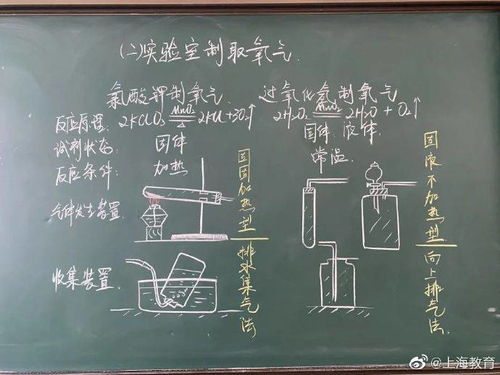 (二)实验室制取氧气
氯酸钾制氧气
反应原理: 2KClO₃ ═(MnO₂/△)═ 2KCl+3O₂↑
试剂状态: 固体
反应条件: 加热
气体发生装置
固固加热型
收集装置
排水集气法
过氧化氢制氧气
2H₂O₂ ═(MnO₂)═ 2H₂O + O₂↑
固体 液体
常温
固液不加热型
向上排气法
@上海教育